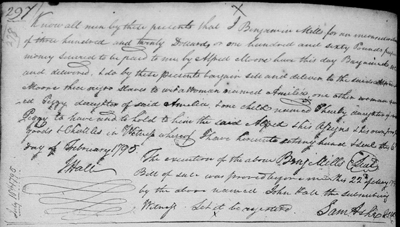 297
Know all men by these presents that I Benjamin Mills for an in consideration
of three hundred and twenty Dollars or one hundred and sixty Pounds
money secured to be paid to me by Alfred Moore have this day Bargained
and delivered. I do by these presents bargain sell and deliver to the said Alfred
Moore three negro Slaves to wit a Woman named Amelia one other woman
ed Peggy daughter of said Amelia, one child named Phereby daughter of
Peggy to have and to hold to him the said Alfred his
Goods & Chattles in Witness whereof I have hereunto set my hand & seal this
day of February 1795
J Hall
Benj Mills Seal
The execution of the above
Bill of sale was proved before me this 22nd of Feby
by the above named John Hall the subscribing
Witness. Let it be registered
Sam